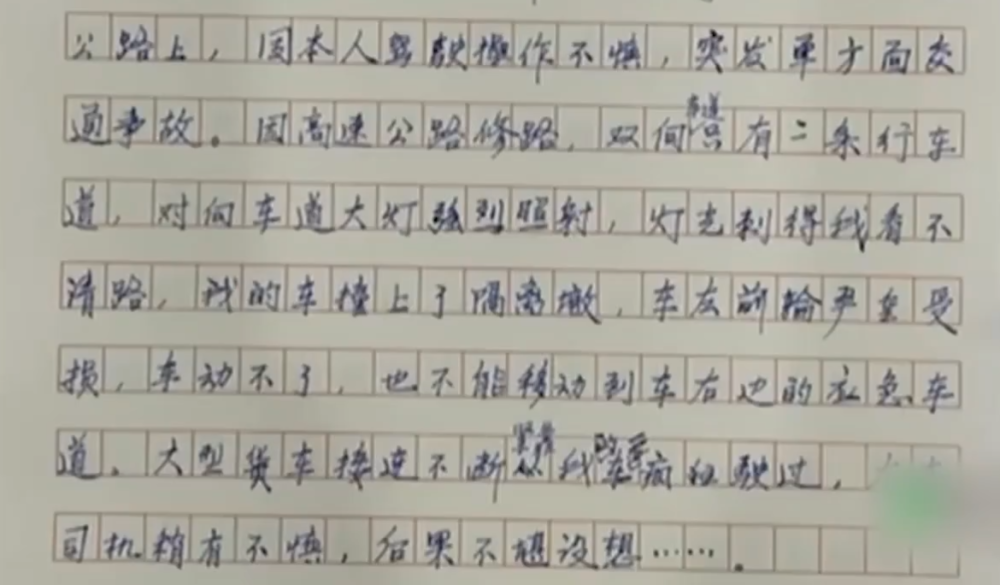 公路上，因本人驾驶操作不慎，突发单方面交
通事故。因高速公路修路，双向车道只有二条行车
道，对向车道大灯强烈照射，灯光刺得我看不
清路，我的车撞上了隔离墩，车左前轮严重受
损，车动不了，也不能移动到车右边的应急车
道。大型货车接连不断紧靠从我车疯狂驶过，
司机稍有不慎，后果不堪设想……。